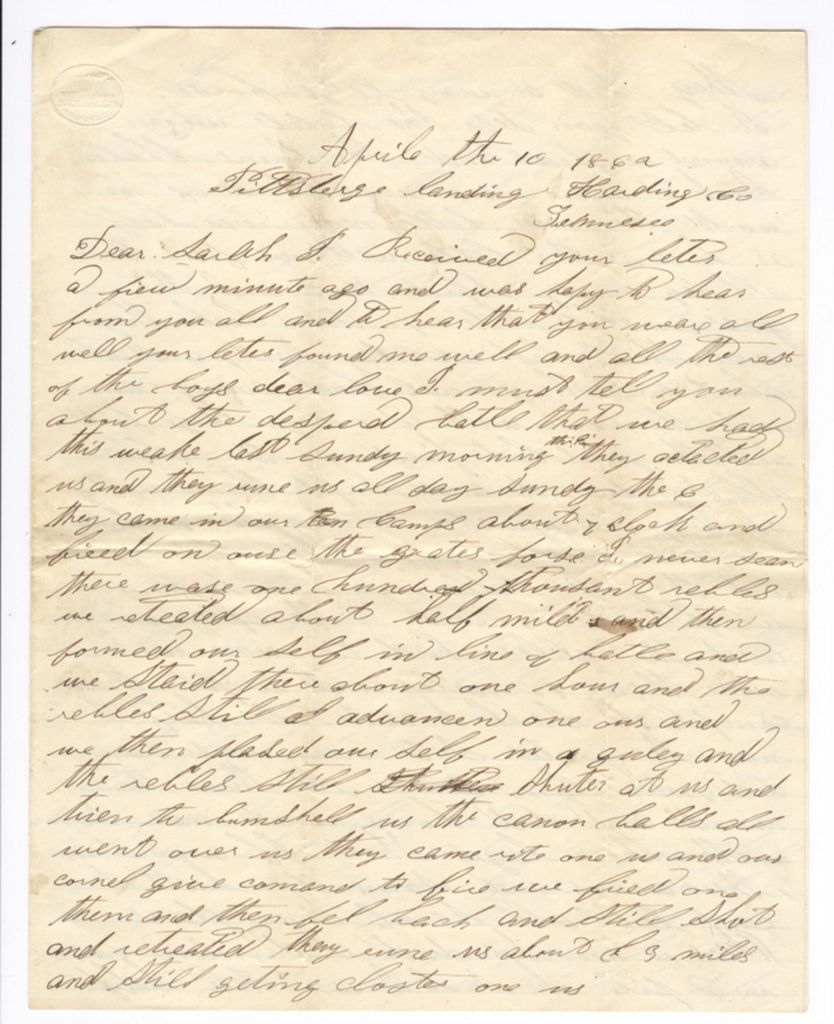 Aprile the 10 1862
Pittsberge landing Harding Co
Tennesee
Dear. Sarah I. Received your leter
a fiew minute ago and was hapy to hear
from you all and to hear that you weare all
well your leter found me well and all the rest
of the boys dear love I. must tel you
about the desperd batle that we had
this weake last Sundy morning they atacted
us and they rune us all day Sundy the 6
they came in our Camps about 7 clock and
fired on ouse the grates forse I never sean
there wase one hundred thousant rebles
we retreated about half mild and then
formed our self in line of batle and
we staid there about one hour and the
rebles still advancen one ous and
we then plased our self in a guley and
the rebles still shuter at us and
trien to bumshell us the canon balls all
went over us they came rite one us and our
cornel give comand to fire we fired one
them and then fel back and still shot
and retreated they rune us about 3 miles
and still geting closter one us